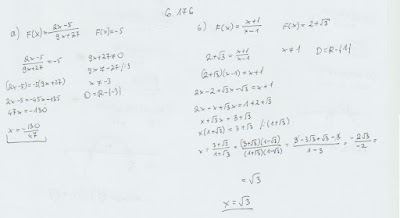 6.176
a) F(x)=\frac{2x-5}{9x+27}   F(x)=-5
\frac{2x-5}{9x+27}=-5   9x+27≠0
9x≠-27/:9
(2x-5)=-5(9x+27)   x≠-3
2x-5=-45x-135   D=R-{-3}
47x=-130
x=-\frac{130}{47}
b) F(x)=\frac{x+1}{x-1}   F(x)=2+√3
2+√3=\frac{x+1}{x-1}   x≠1   D=R-{1}
(2+√3)(x-1)=x+1
2x-2+√3x-√3=x+1
2x-x+√3x=1+2+√3
x+√3x=3+√3
x(1+√3)=3+√3 /:(1+√3)
x=\frac{3+√3}{1+√3}=\frac{(3+√3)(1-√3)}{(1+√3)(1-√3)}=\frac{3-3√3+√3-3}{1-3}=\frac{-2√3}{-2}=
=√3
x=√3